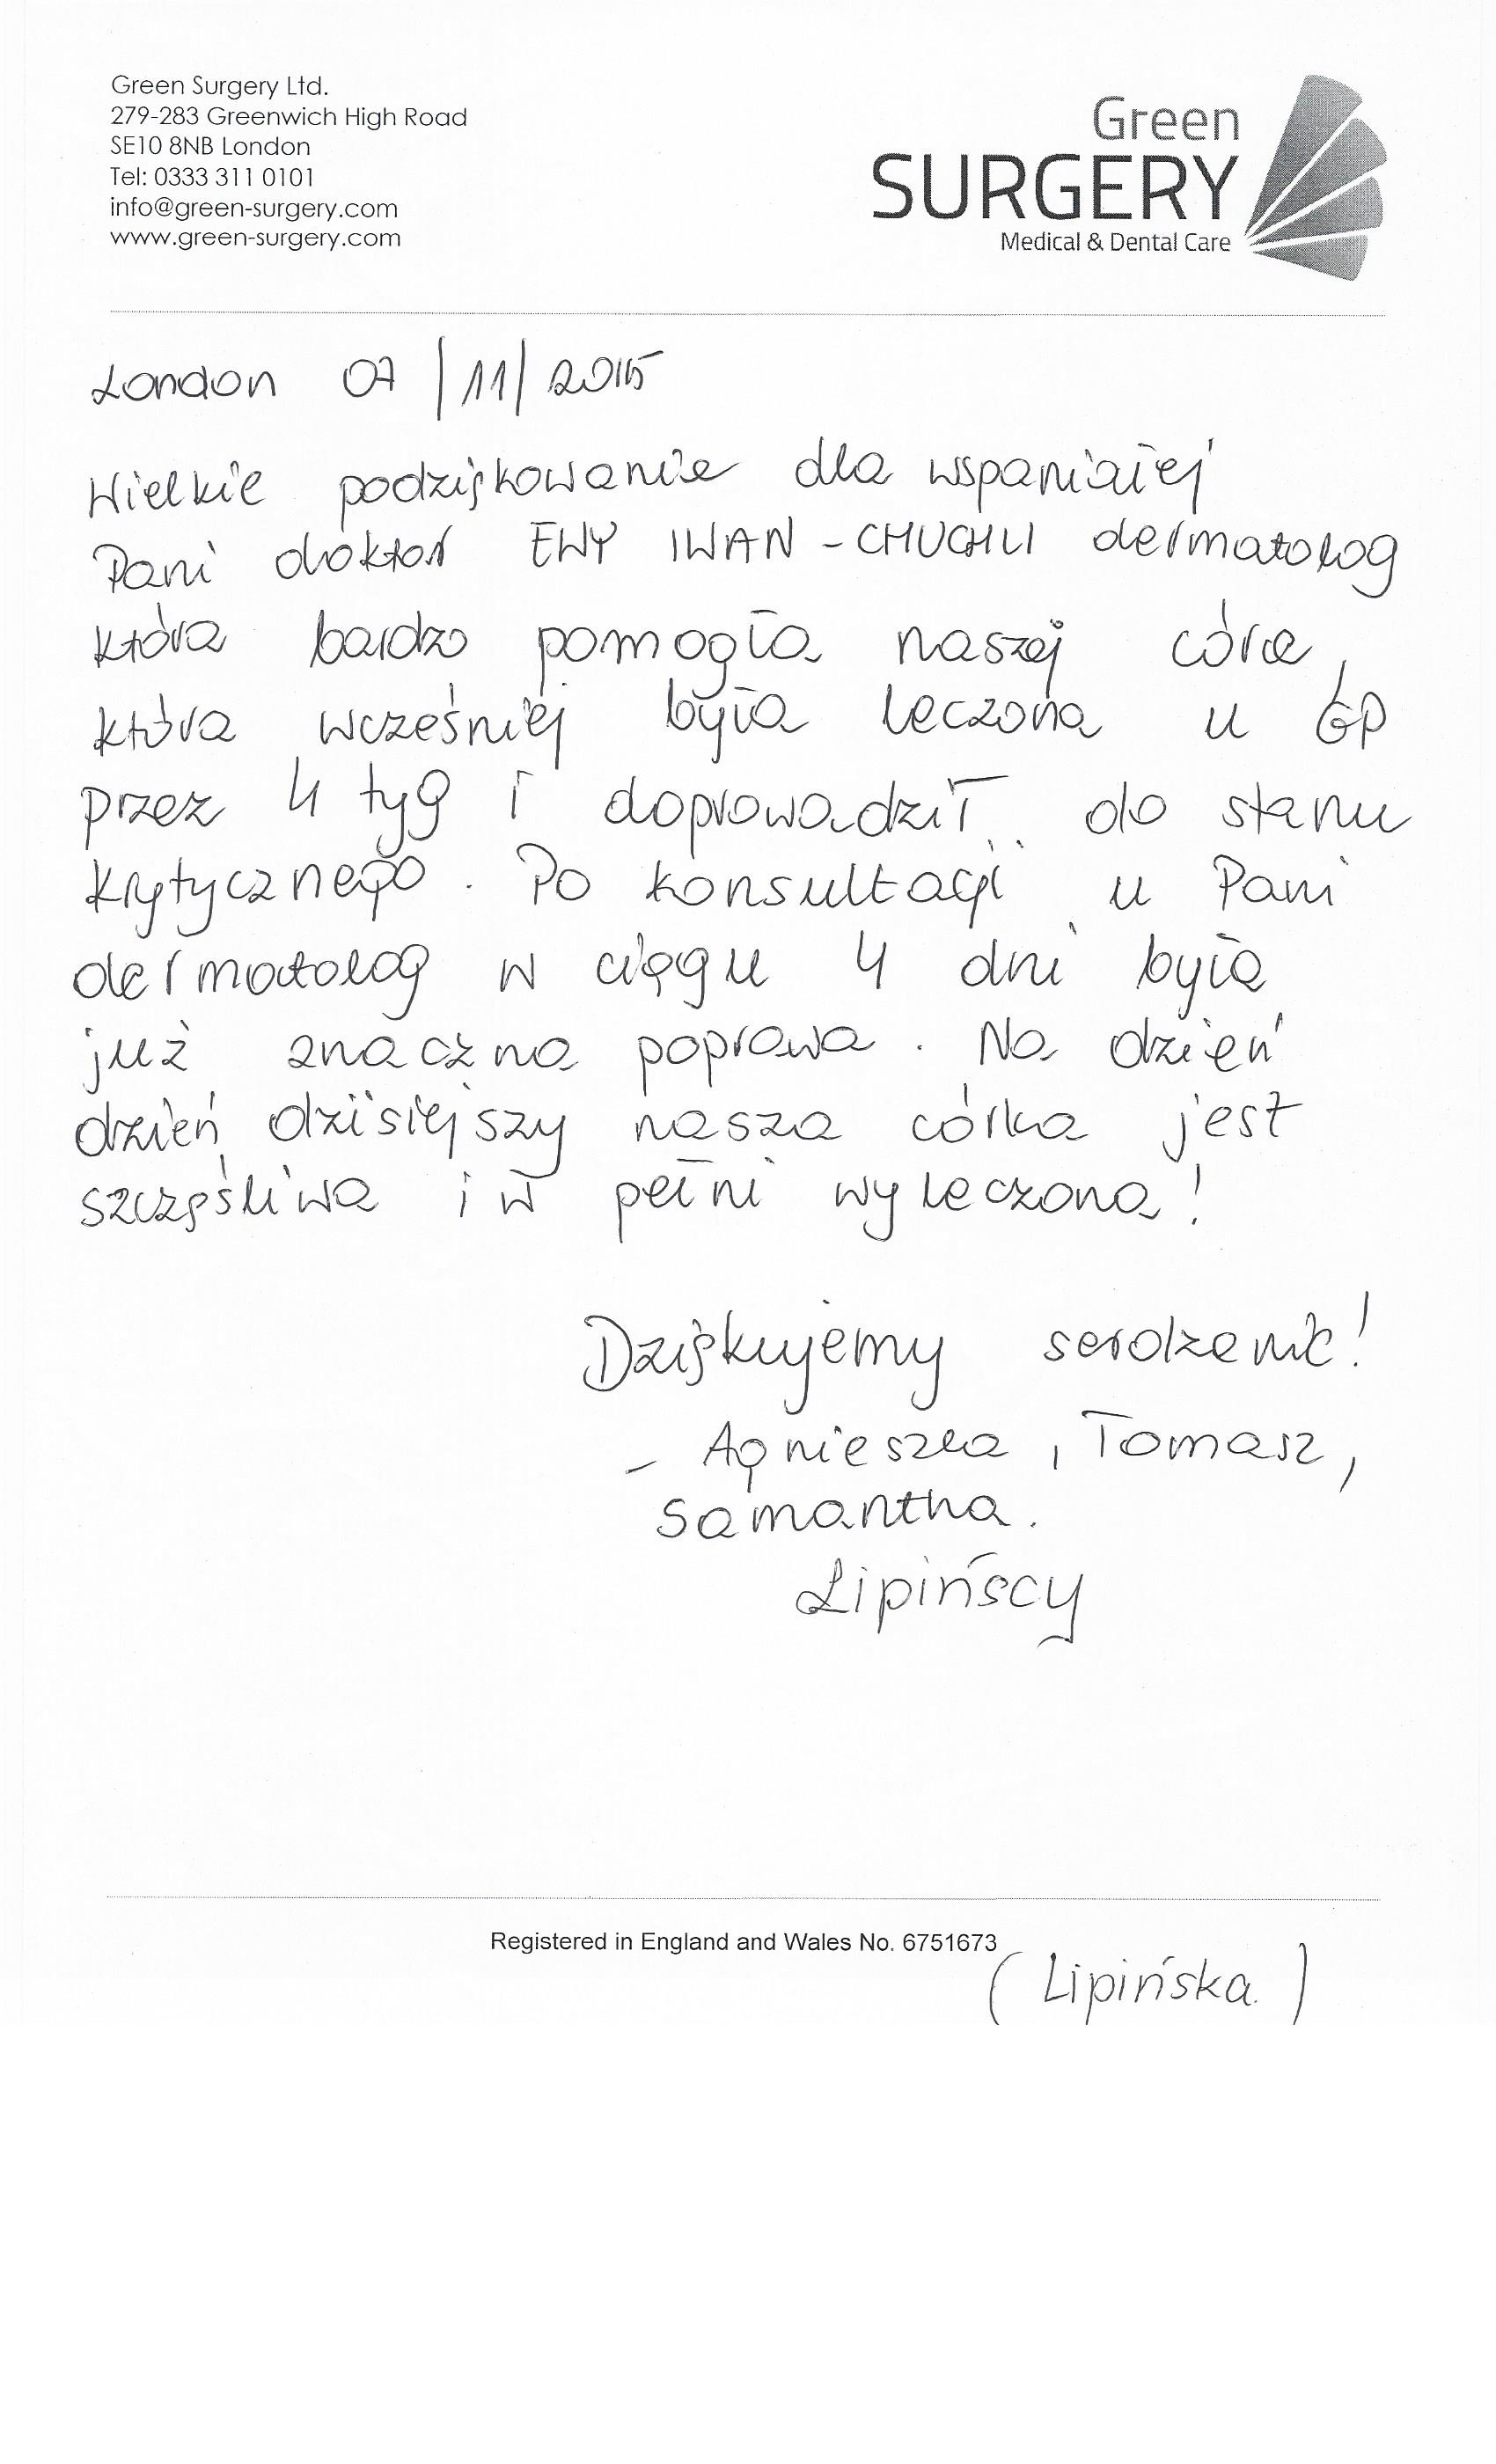 Green Surgery Ltd.
279-283 Greenwich High Road
SE10 8NB London
Tel: 0333 311 0101
info@green-surgery.com
www.green-surgery.com
Green
SURGERY
Medical & Dental Care
London 07/11/2015
Wielkie podziękowanie dla wspaniałej
Pani doktor EWY IWAN-CHUCHLI dermatolog
która bardzo pomogła naszej córce,
która wcześniej była leczona u GP
przez 4 tyg i doprowadził do stanu
krytycznego. Po konsultacji u Pani
dermatolog w ciągu 4 dni była
już znaczna poprawa. Na dzień
dzień dzisiejszy nasza córka jest
szczęśliwa i w pełni wyleczona!
Dziękujemy serdzenie!
- Agnieszka, Tomasz,
Samantha.
Lipińscy
Registered in England and Wales No. 6751673
(Lipińska)